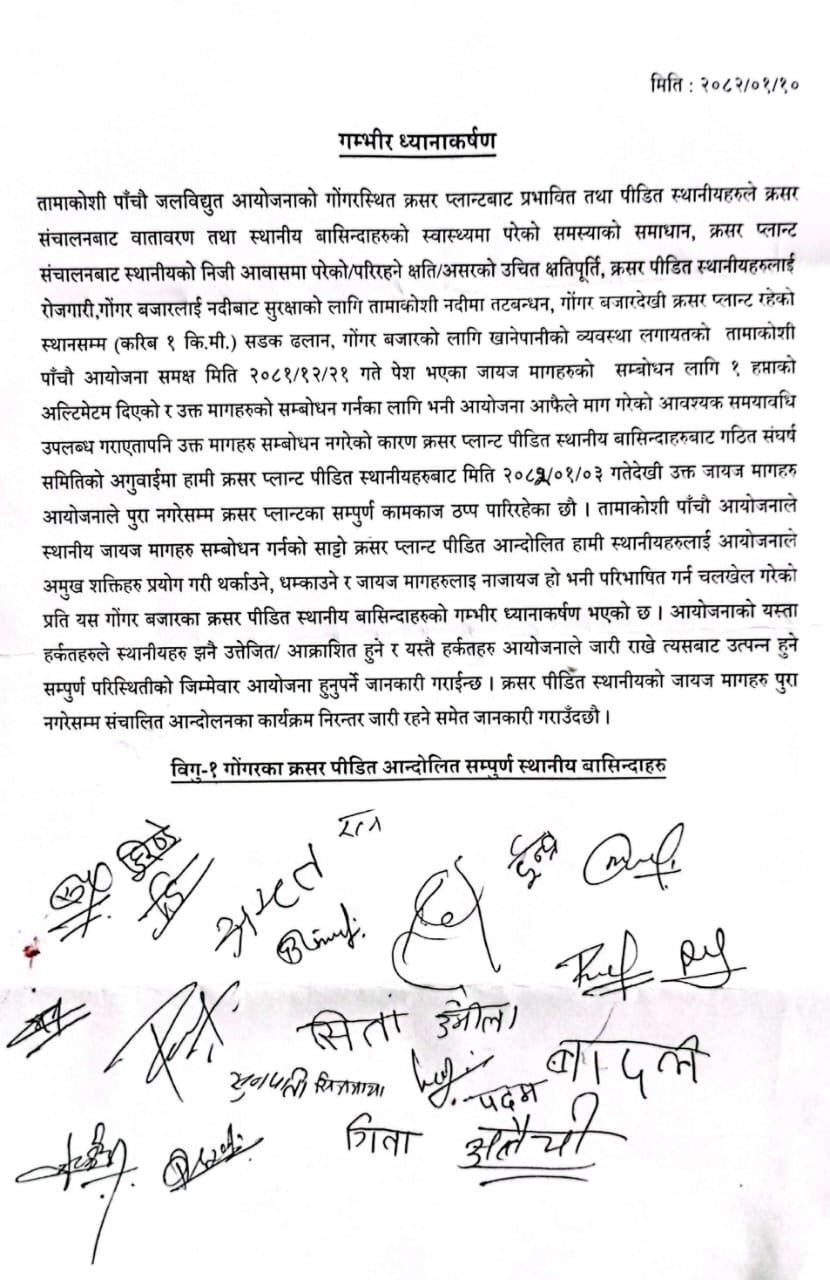 मिति : २०८२/०१/१०
गम्भीर ध्यानाकर्षण
तामाकोशी पाँचौ जलविद्युत आयोजनाको गोंगरस्थित क्रसर प्लान्टबाट प्रभावित तथा पीडित स्थानीयहरुले क्रसर
संचालनबाट वातावरण तथा स्थानीय बासिन्दाहरुको स्वास्थ्यमा परेको समस्याको समाधान, क्रसर प्लान्ट
संचालनबाट स्थानीयको निजी आवासमा परेको/परिरहने क्षति/असरको उचित क्षतिपूर्ति, क्रसर पीडित स्थानीयहरुलाई
रोजगारी,गोंगर बजारलाई नदीबाट सुरक्षाको लागि तामाकोशी नदीमा तटबन्धन, गोंगर बजारदेखी क्रसर प्लान्ट रहेको
स्थानसम्म (करिब १ कि.मी.) सडक ढलान, गोंगर बजारको लागि खानेपानीको व्यवस्था लगायतको तामाकोशी
पाँचौ आयोजना समक्ष मिति २०८१/१२/२१ गते पेश भएका जायज मागहरुको सम्बोधन लागि १ हप्ताको
अल्टिमेटम दिएको र उक्त मागहरुको सम्बोधन गर्नका लागि भनी आयोजना आफैले माग गरेको आवश्यक समयावधि
उपलब्ध गराएतापनि उक्त मागहरु सम्बोधन नगरेको कारण क्रसर प्लान्ट पीडित स्थानीय बासिन्दाहरुबाट गठित संघर्ष
समितिको अगुवाईमा हामी क्रसर प्लान्ट पीडित स्थानीयहरुबाट मिति २०८२/०१/०३ गतेदेखी उक्त जायज मागहरु
आयोजनाले पुरा नगरेसम्म क्रसर प्लान्टका सम्पुर्ण कामकाज ठप्प पारिरहेका छौ । तामाकोशी पाँचौ आयोजनाले
स्थानीय जायज मागहरु सम्बोधन गर्नको साट्टो क्रसर प्लान्ट पीडित आन्दोलित हामी स्थानीयहरुलाई आयोजनाले
अमुख शक्तिहरु प्रयोग गरी थर्काउने, धम्काउने र जायज मागहरुलाइ नाजायज हो भनी परिभाषित गर्न चलखेल गरेको
प्रति यस गोंगर बजारका क्रसर पीडित स्थानीय बासिन्दाहरुको गम्भीर ध्यानाकर्षण भएको छ । आयोजनाको यस्ता
हर्कतहरुले स्थानीयहरु झनै उत्तेजित/ आक्राशित हुने र यस्तै हर्कतहरु आयोजनाले जारी राखे त्यसबाट उत्पन्न हुने
सम्पुर्ण परिस्थितीको जिम्मेवार आयोजना हुनुपर्ने जानकारी गराईन्छ । क्रसर पीडित स्थानीयको जायज मागहरु पुरा
नगरेसम्म संचालित आन्दोलनका कार्यक्रम निरन्तर जारी रहने समेत जानकारी गराउँदछौ ।
विगु-१ गोंगरका क्रसर पीडित आन्दोलित सम्पुर्ण स्थानीय बासिन्दाहरु
सिता
पदम
गिता